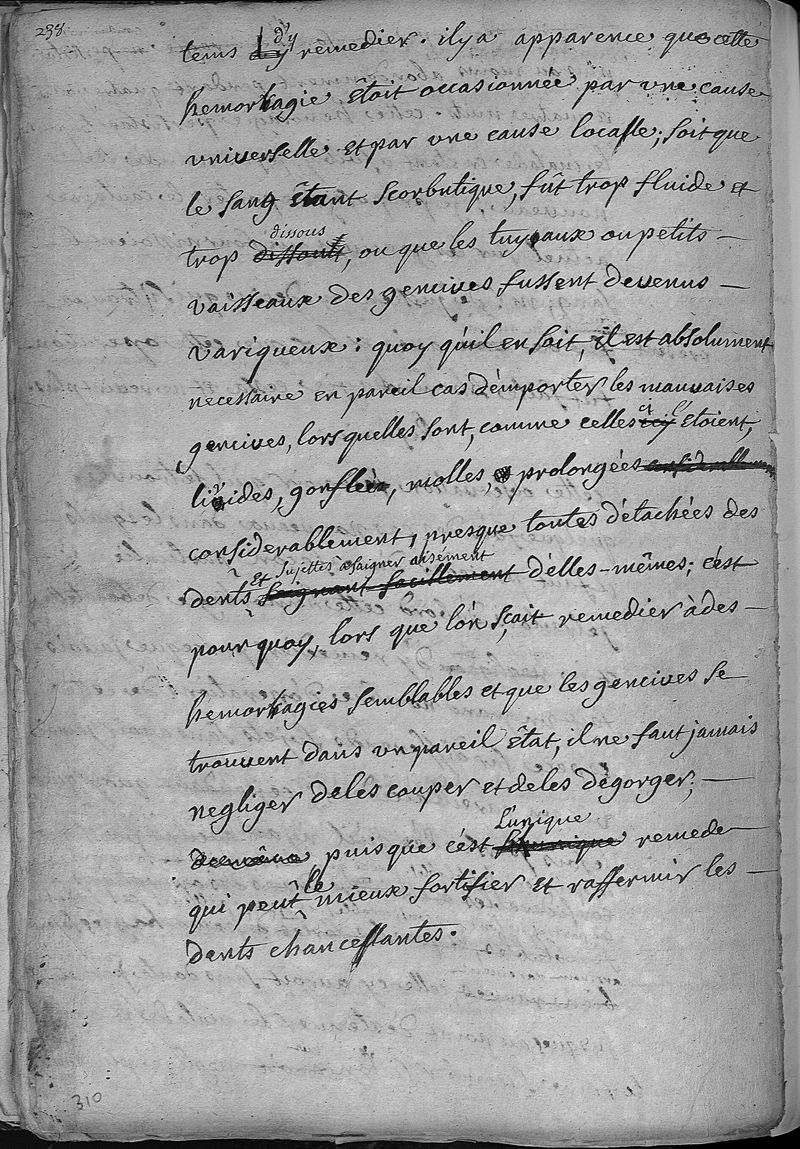 238.
tems d'y remedier. il y a apparence que cette
hemorhagie êtoit occasionnée par vne cause
vniverselle et par vne cause localle; soit que
le sang êtant scorbutique, fût trop fluide et
dissous
trop dissout, ou que les tuyaux ou petits –
vaisseaux des gencives fussent devenus –
variqueux: quoy qu'il en soit, il est absolument
necessaire en pareil cas d'emporter les mauvaises
gencives, lorsquelles sont, comme celles cy etoient,
livides, gonflées, molles, prolongées considerablement
considerablement, presque toutes détachées des
et sujettes a saigner aisément
dents saignant facillement d'elles-mêmes; c'est
pourquoy, lors que l'on sçait remedier à des –
hemorhagies semblables et que les gencives se
trouvent dans vn pareil êtat, il ne faut jamais
negliger de les couper et de les dégorger; –
L'unique
puisque c'est remede
le
qui peut mieux fortifier et raffermir les –
dents chancellantes.
310